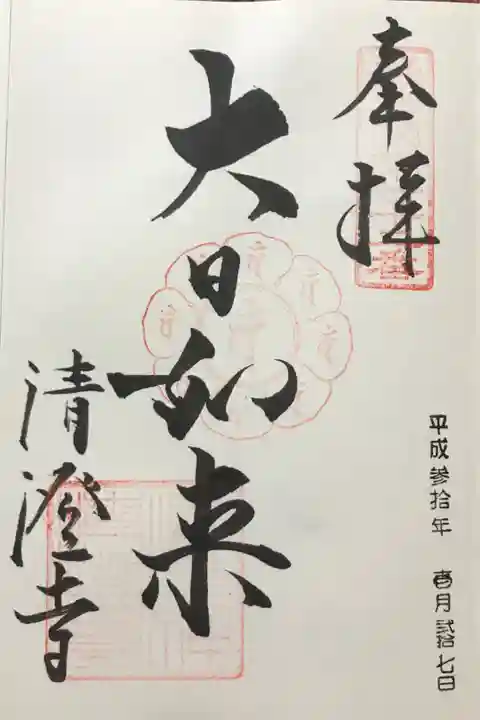 奉拝
大日如来
清澄寺
平成参拾年 壱月弐拾七日